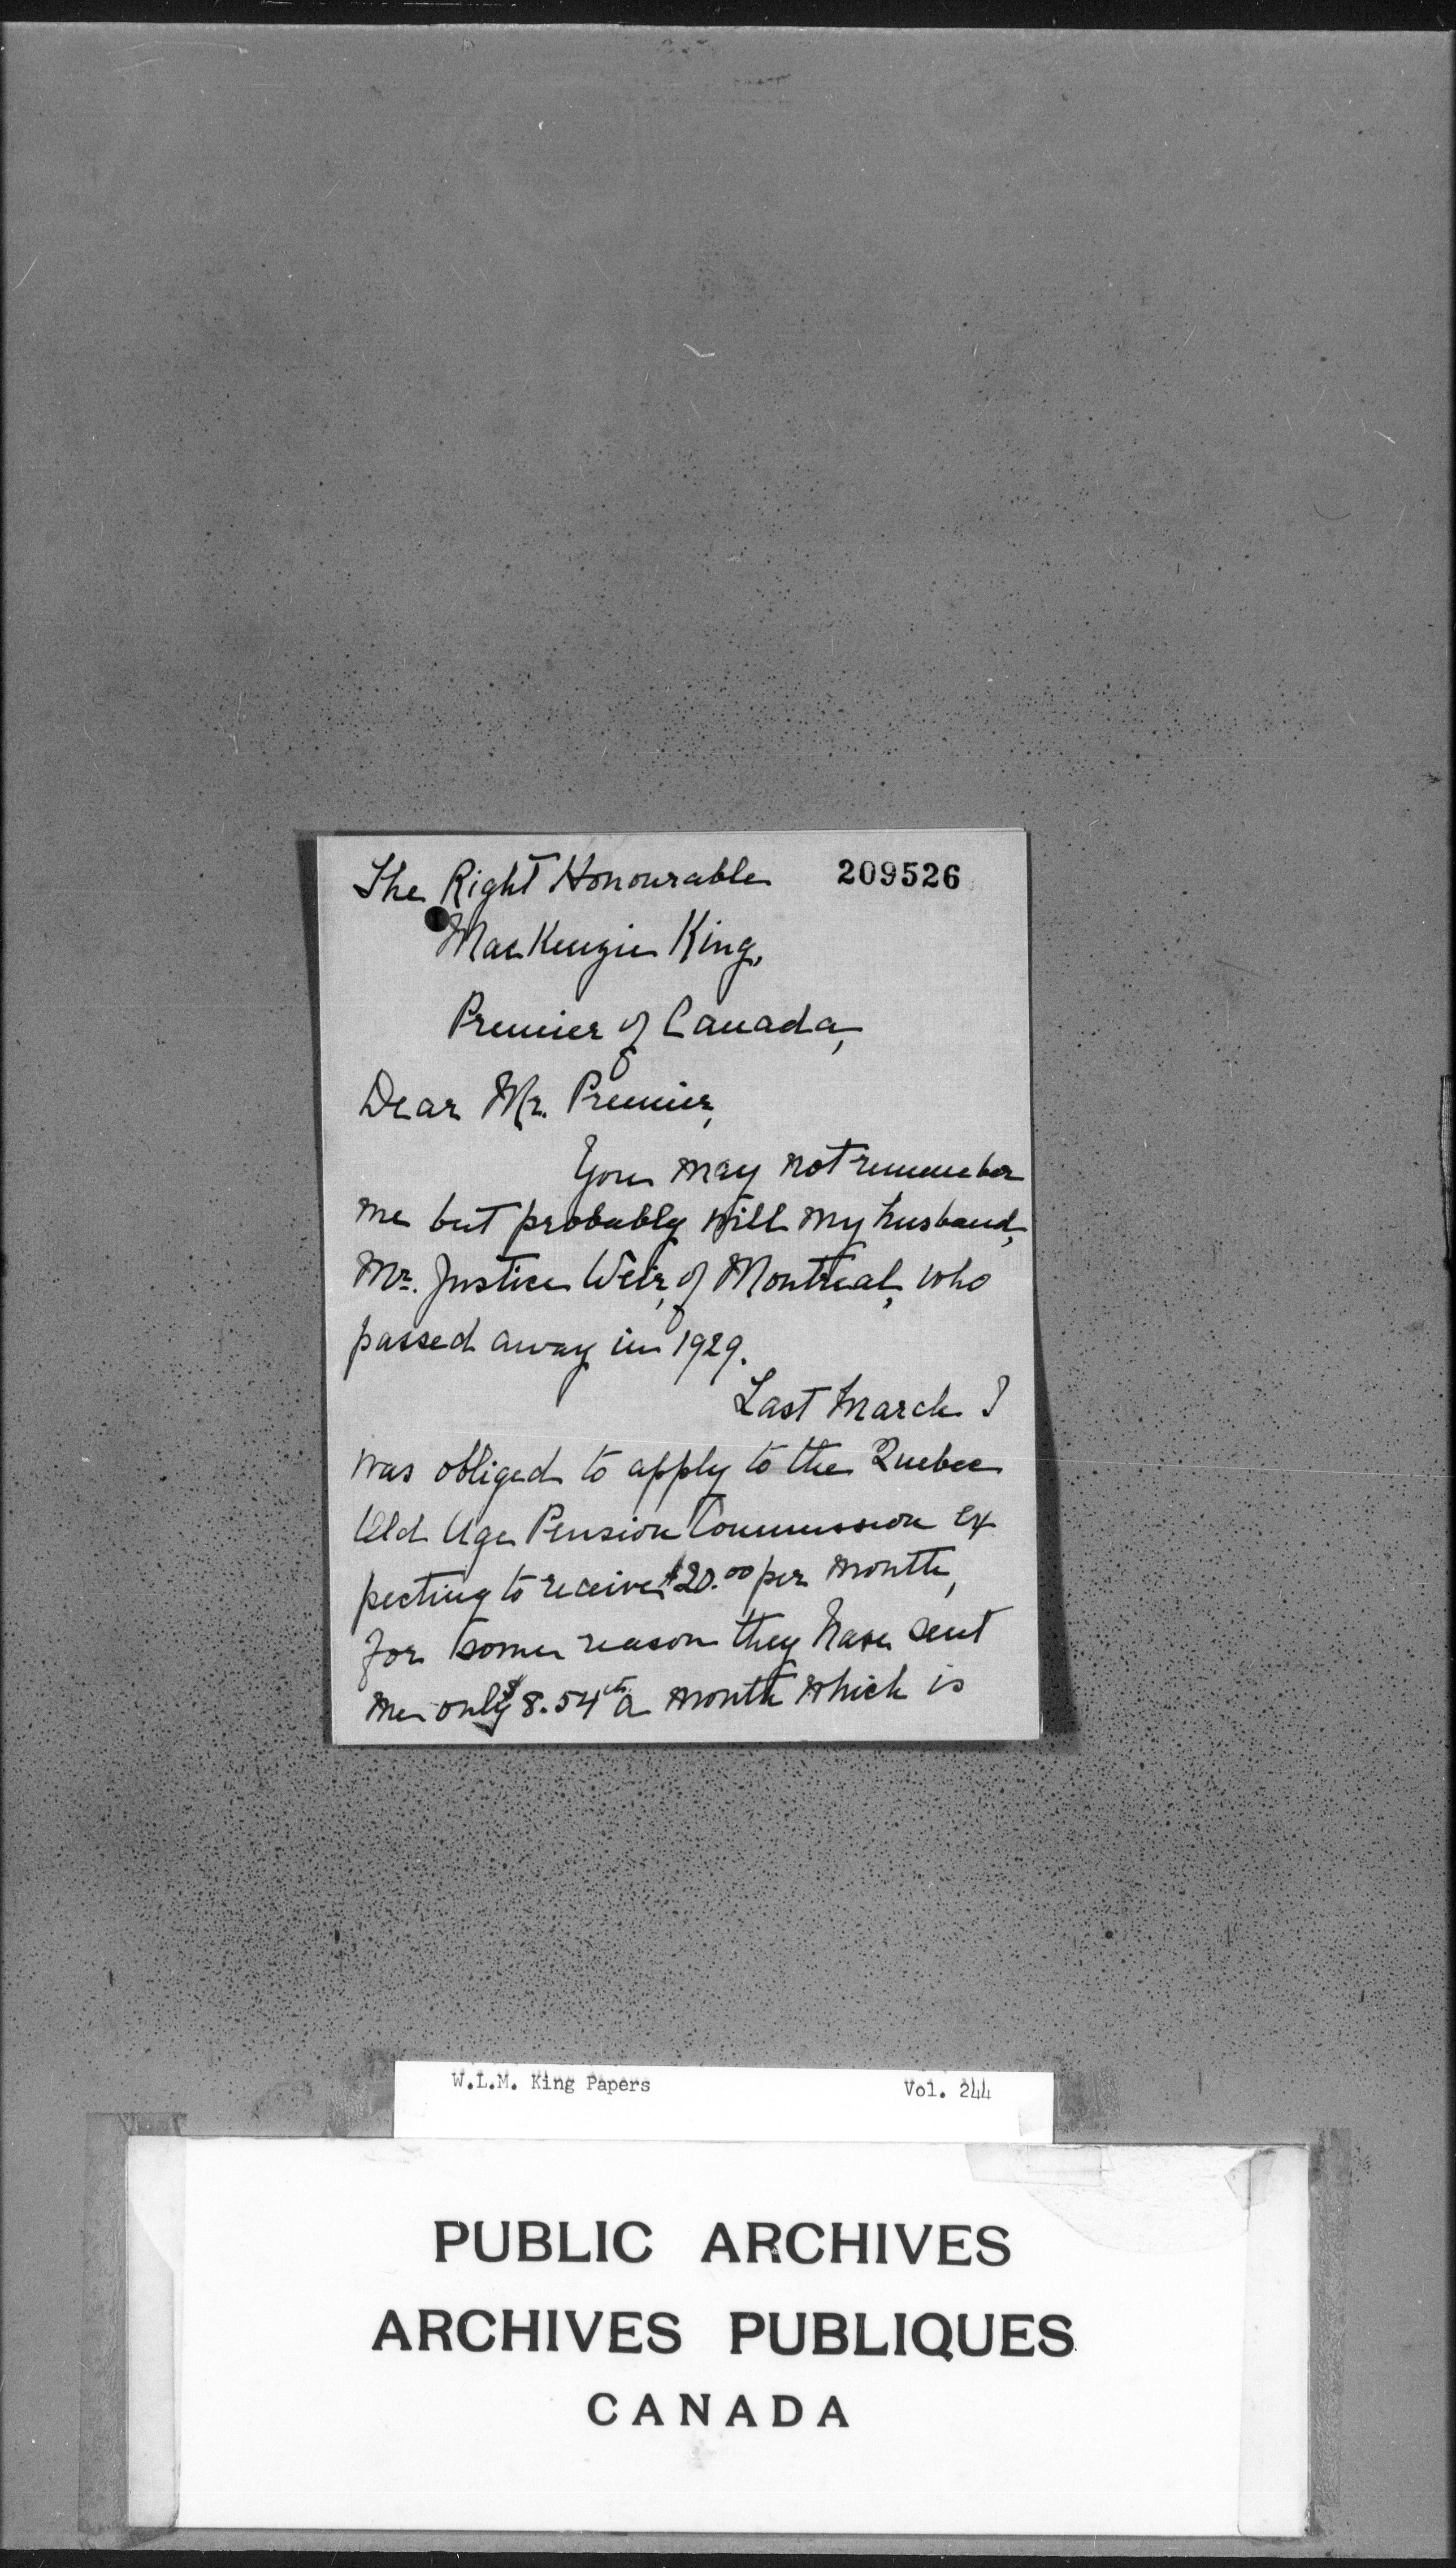 The Right Honourable 209526
MacKenzie King,
Premier of Canada,
Dear Mr. Premier,
You may not remember
me but probably will my husband,
Mr. Justice Weir, of Montreal, who
passed away in 1929.
Last March I
was obliged to apply to the Quebec
Old Age Pension Commission ex
pecting to receive $20.00 per month,
for some reason they have sent
me only $8.54cts a month which is
W.L.M. King Papers Vol. 244
PUBLIC ARCHIVES
ARCHIVES PUBLIQUES
CANADA